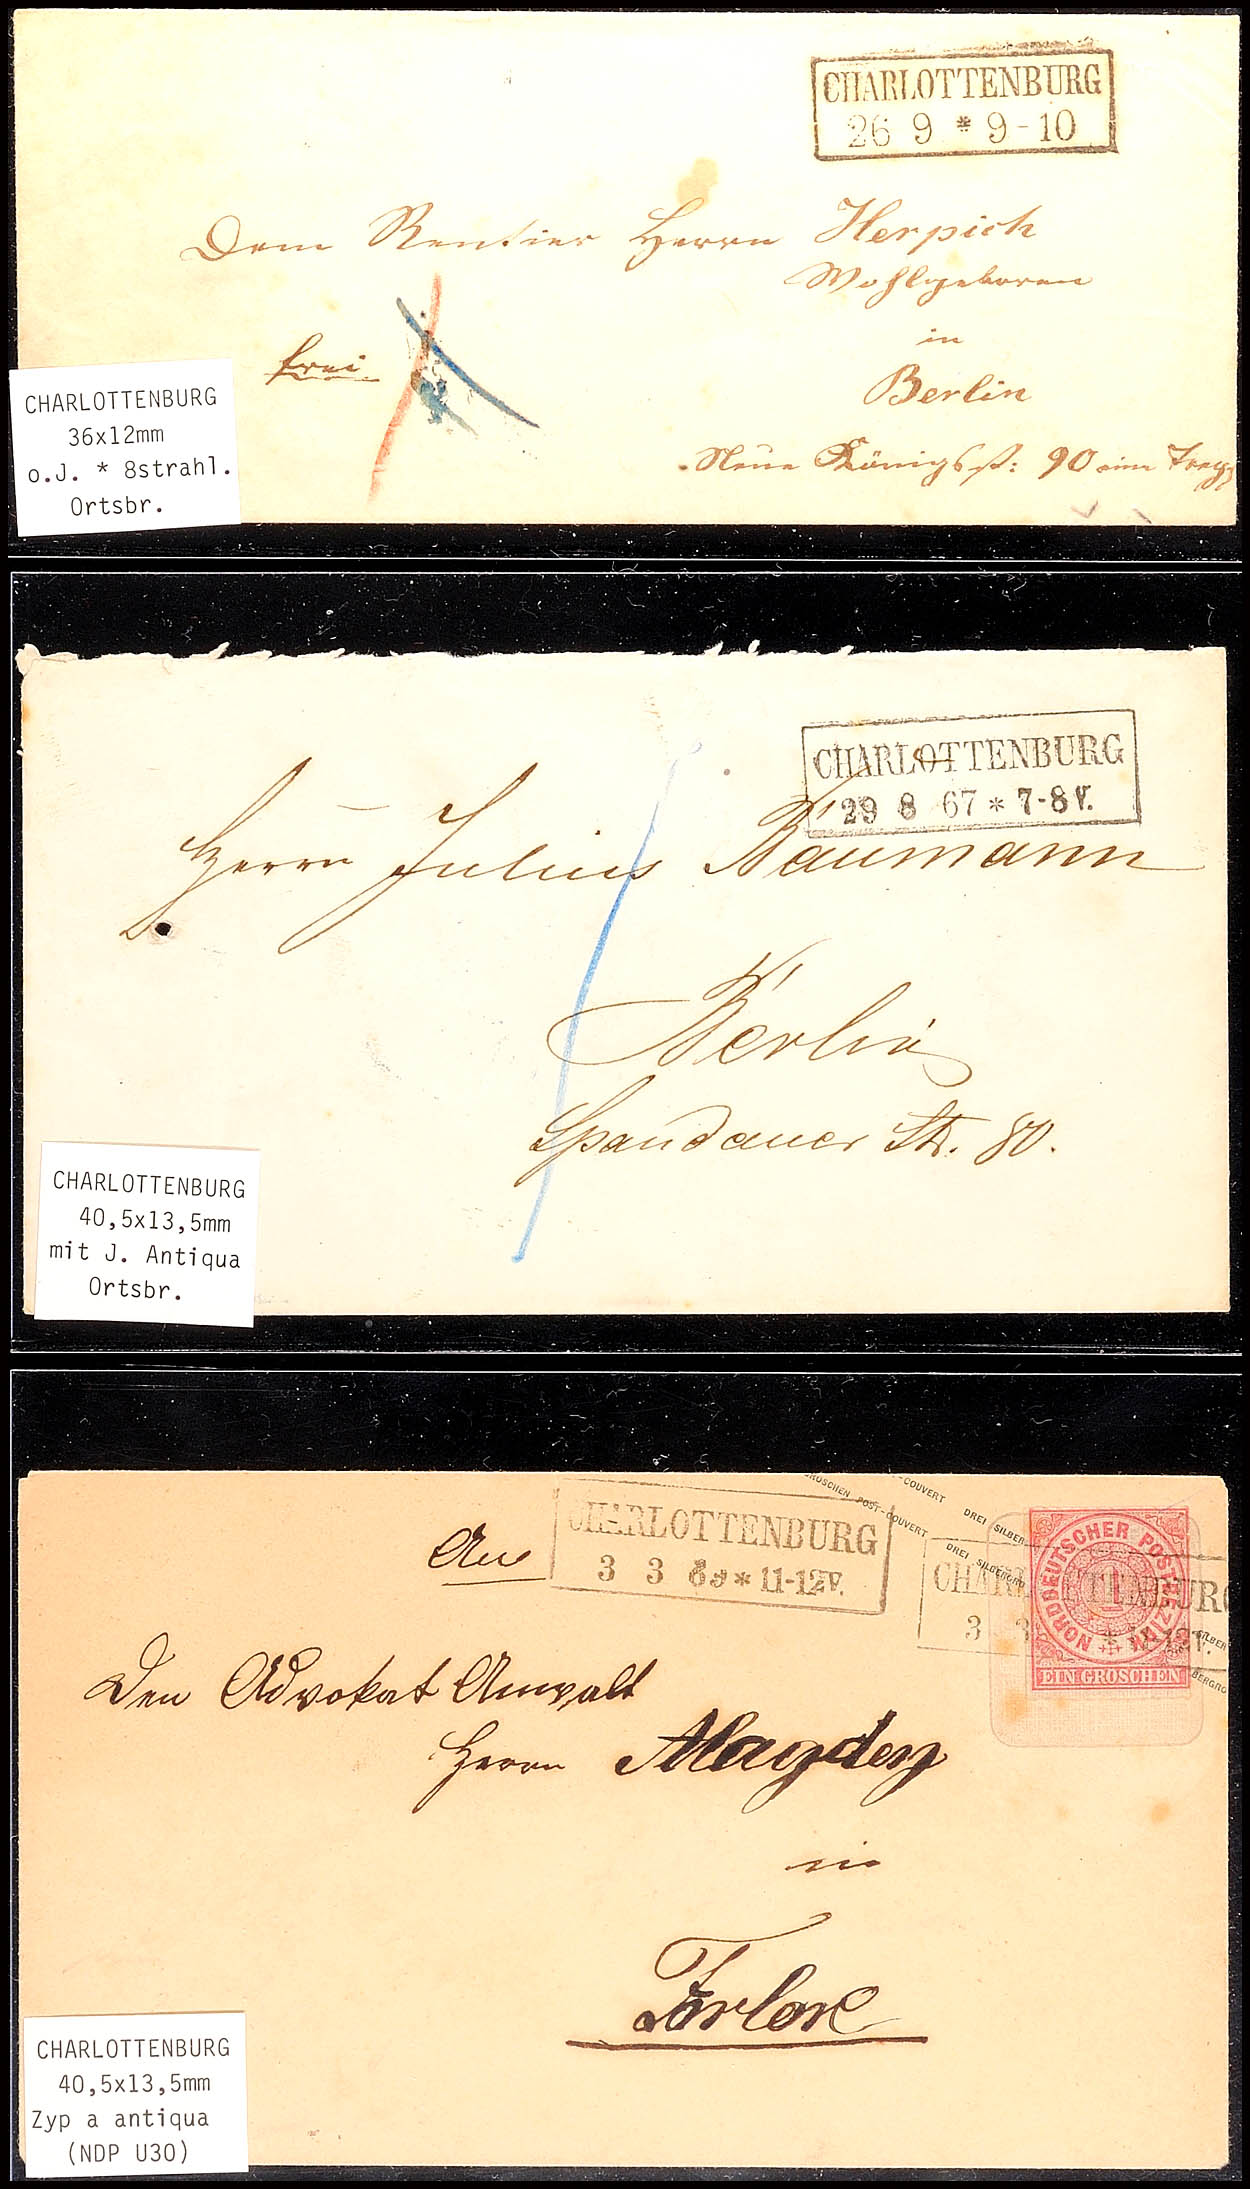 CHARLOTTENBURG
26 9 * 9-10
Dem Rentier Herrn Herpich
Wohlgeboren
in
Berlin
frei
Neue Königsst: 90 eine Trepp
CHARLOTTENBURG
36x12mm
o.J. * 8strahl.
Ortsbr.
CHARLOTTENBURG
29 8 67 * 7-8 V.
Herrn Julius Baumann
Berlin
Spandauer Str. 80.
CHARLOTTENBURG
40,5x13,5mm
mit J. Antiqua
Ortsbr.
GROSCHEN POST-COUVERT
COUVERT DREI SILBER
DREI SILBERGRO
CHARLOTTENBURG
3 3 * 11-12V.
CHARLOTTENBURG
3 3 * 11-12V.
NORDDEUTSCHER POSTBEZIRK
1
EIN GROSCHEN
SILBER
BERGRO
An
Den Advokat Anwalt
Herrn
in
CHARLOTTENBURG
40,5x13,5mm
Zyp a antiqua
(NDP U30)